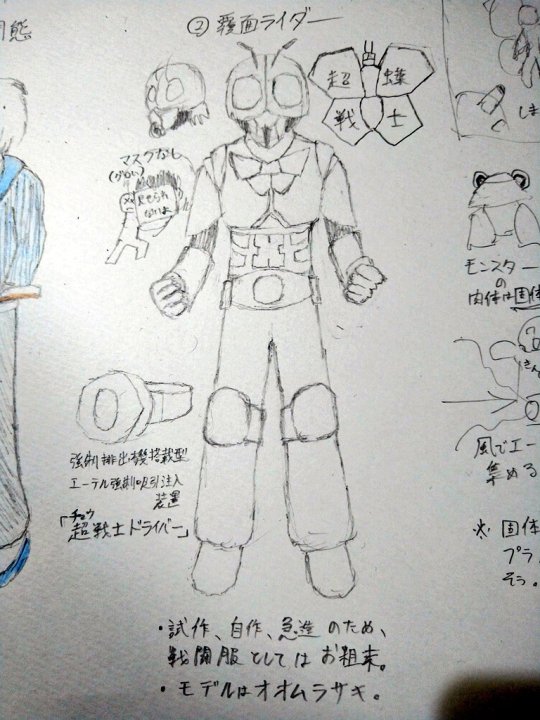 態
② 覆面ライダー
超 蝶
戦 士
マスクなし
(グロい)
見せられ
ないよ
しま
モンスター
の
肉体は固体
強制排出機搭載型
エーテル強制吸引注入
装置
「超戦士ドライバー」
チョウ
風でエー
集める
※ 固体
プラ
そう。
・試作、自作、急造のため、
戦闘服としてはお粗末。
・モデルはオオムラサキ。